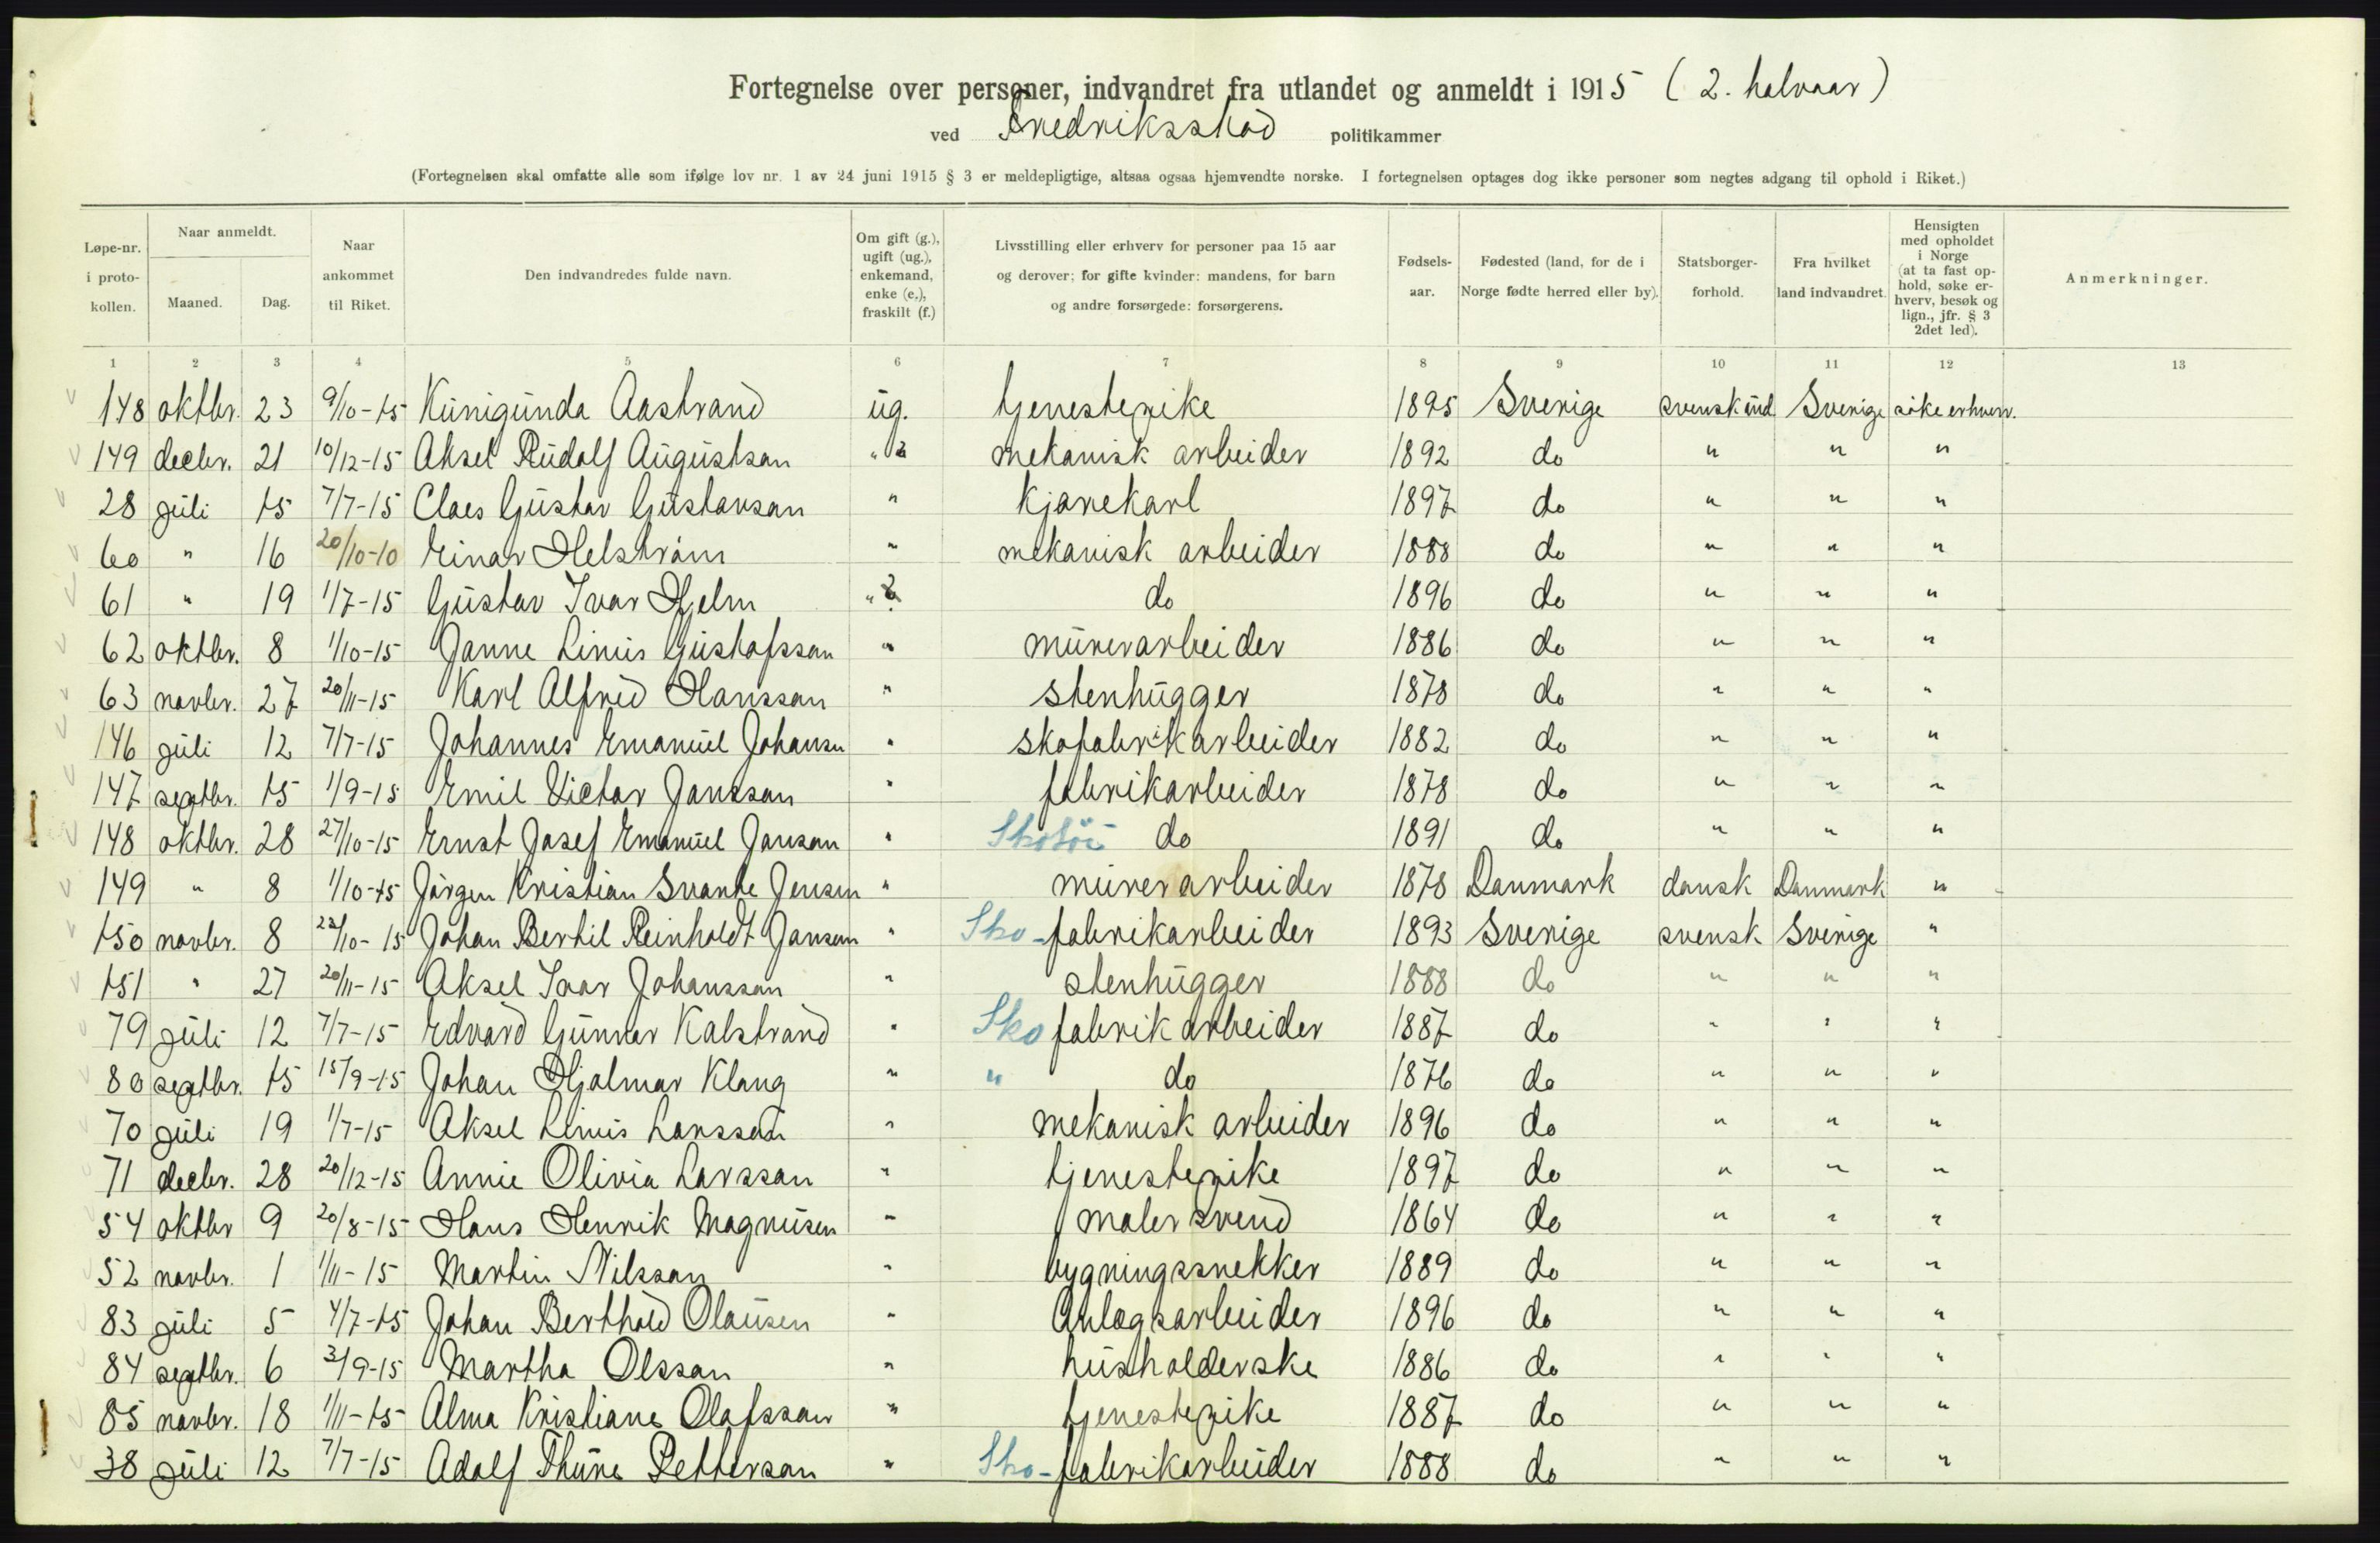 Fortegnelse over personer, indvandret fra utlandet og anmeldt i 1915 (2. halvaar)
ved Fredriksstad politikammer
(Fortegnelsen skal omfatte alle som ifølge lov nr. 1 av 24 juni 1915 § 3 er meldepligtige, altsaa ogsaa hjemvendte norske. I fortegnelsen optages dog ikke personer som negtes adgang til ophold i Riket.)
Løpe-nr. i proto-kollen. Naar anmeldt. Maaned. Dag. Naar ankommet til Riket. Den indvandredes fulde navn. Om gift (g.), ugift (ug.), enkemand, enke (e.), fraskilt (f.) Livsstilling eller erhverv for personer paa 15 aar og derover; for gifte kvinder: mandens, for barn og andre forsørgede: forsørgerens. Fødsels-aar. Fødested (land, for de i Norge fødte herred eller by). Statsborger-forhold. Fra hvilket land indvandret. Hensigten med opholdet i Norge (at ta fast op-hold, søke er-hverv, besøk og lign., jfr. § 3 2det led). Anmerkninger.
1 2 3 4 5 6 7 8 9 10 11 12 13
148 oktbr. 23 9/10-15 Kunigunda Aastrand ug. tjenestepike 1895 Sverige svensk und. Sverige søke erhverv.
149 decbr. 21 10/12-15 Aksel Rudolf Augustson " mekanisk arbeider 1892 do " " "
28 juli 15 7/7-15 Claes Gustav Gustavson " kjørekarl 1897 do " " "
60 " 16 20/10-10 Einar Helstrøm " mekanisk arbeider 1888 do " " "
61 " 19 1/7-15 Gustav Ivar Hjelm " do 1896 do " " "
62 oktbr. 8 1/10-15 Janne Linus Gustafsson " murerarbeider 1886 do " " "
63 novbr. 27 20/11-15 Karl Alfred Hansson " stenhugger 1878 do " " "
146 juli 12 7/7-15 Johannes Emanuel Johansn " skofabrikarbeider 1882 do " " "
147 septbr. 15 1/9-15 Emil Victor Jansson " fabrikarbeider 1878 do " " "
148 oktbr. 28 27/10-15 Ernst Josef Emanuel Janson " do 1891 do " " "
149 " 8 1/10-15 Jørgen Kristian Svante Jensen " murerarbeider 1878 Danmark dansk Danmark "
150 novbr. 8 22/10-15 Johan Bertil Reinholdt Janson " Sko-fabrikarbeider 1893 Sverige svensk Sverige "
151 " 27 20/11-15 Aksel Ivar Johansson " stenhugger 1888 do " " "
79 juli 12 7/7-15 Edvard Gunnar Kalstrand " Sko fabrikarbeider 1887 do " " "
80 septbr. 15 15/9-15 Johan Hjalmar Klang " " do 1876 do " " "
70 juli 19 1/7-15 Aksel Linus Larsson " mekanisk arbeider 1896 do " " "
71 decbr. 28 20/12-15 Annie Olivia Larsson " tjenestepike 1897 do " " "
54 oktbr 9 20/8-15 Hans Henrik Magnusen " malersvend 1864 do " " "
52 novbr. 1 1/11-15 Martin Nilsson " bygningssnekker 1889 do " " "
83 juli 5 4/7-15 Johan Berthold Olausen " Anlægsarbeider 1896 do " " "
84 septbr. 6 3/9-15 Martha Olsson " husholderske 1886 do " " "
85 novbr. 18 1/11-15 Alma Kristiane Olafsson " tjenestepike 1887 do " " "
38 juli 12 7/7-15 Adolf Thure Petterson " Sko-fabrikarbeider 1888 do " " "